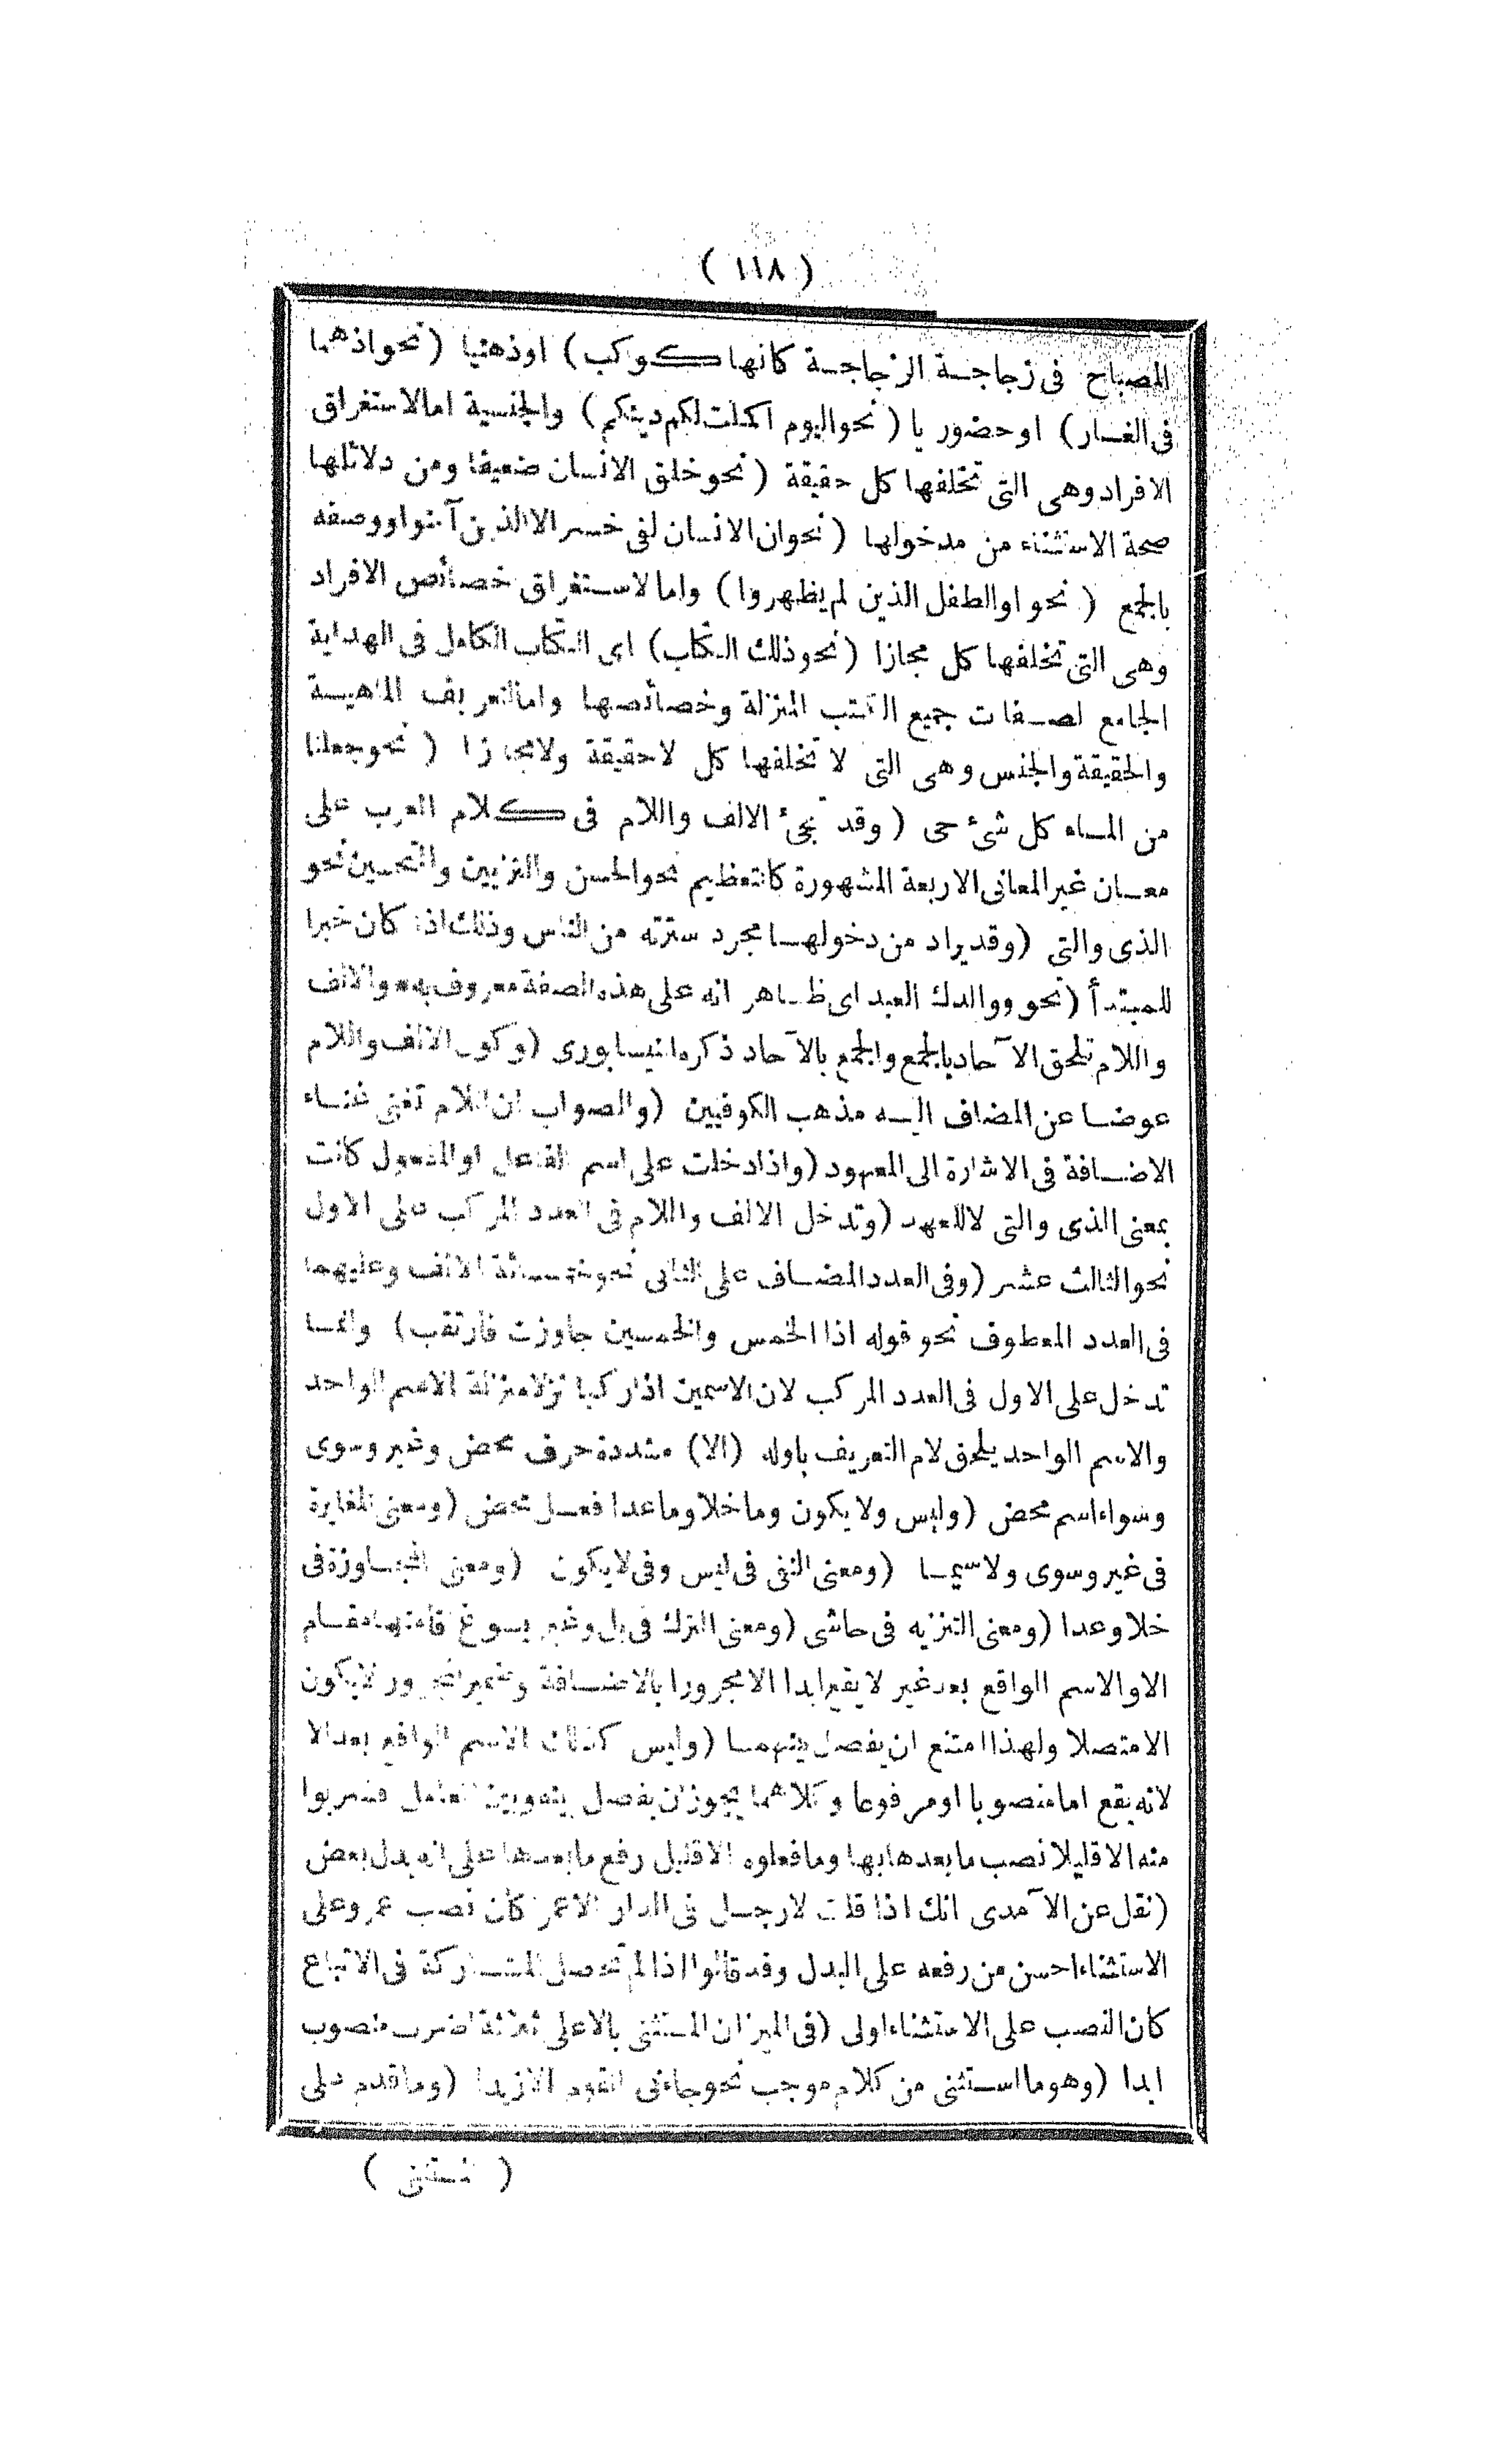 ( ١١٨ )
المصباح فى زجاجة الزجاجة كانها كوكب) اوذهنيا (نحو اذهما
فى الغار) او حضوريا (نحو اليوم اكملت لكم دينكم) والجنسية اما لاستغراق
الافراد وهى التى تخلفها كل حقيقة (نحو خلق الانسان ضعيفا ومن دلائلها
صحة الاستثناء من مدخولها (نحو ان الانسان لفى خسر الا الذين آمنوا ووصفه
بالجمع (نحو او الطفل الذين لم يظهروا) واما لاستغراق خصائص الافراد
وهى التى تخلفها كل مجازا (نحو ذلك الكتاب) اى الكتاب الكامل فى الهداية
الجامع لصفات جميع الكتب المنزلة وخصائصها واما لتعريف الماهية
والحقيقة والجنس وهى التى لا تخلفها كل لا حقيقة ولا مجازا (نحو وجعلنا
من الماء كل شئ حى (وقد تجئ الالف واللام فى كلام العرب على
معان غير المعانى الاربعة المشهورة كالتعظيم نحو الحسن والتزيين والتحسين نحو
الذى والتى (وقد يراد من دخولها مجرد سترته من الناس وذلك اذا كان خبرا
للمبتدأ (نحو ووالدك العبد اى ظاهر انه على هذه الصفة معروف بها والالف
واللام تلحق الآحاد بالجمع والجمع بالآحاد ذكره النيسابورى (وكون الالف واللام
عوضا عن المضاف اليه مذهب الكوفيين (والصواب ان اللام تغنى غناء
الاضافة فى الاشارة الى المعهود (واذا دخلت على اسم الفاعل او المفعول كانت
بمعنى الذى والتى لا للعهد (وتدخل الالف واللام فى العدد المركب على الاول
نحو الثالث عشر (وفى العدد المضاف على الثانى نحو خمسمائة الالف وعليهما
فى العدد المعطوف نحو قوله اذا الخمس والخمسين جاوزت فارتقب) وانما
تدخل على الاول فى العدد المركب لان الاسمين اذا ركبا نزلا منزلة الاسم الواحد
والاسم الواحد يلحق لام التعريف باوله (الا) مشددة حرف محض وغير وسوى
وسواء اسم محض (وليس ولا يكون وما خلا وما عدا فعل محض (ومعنى المغايرة
فى غير وسوى ولا سيما (ومعنى النفى فى ليس وفى لا يكون (ومعنى المجاوزة فى
خلا وعدا (ومعنى التنزيه فى حاشى (ومعنى الترك فى بل وغير يسوغ قامتها مقام
الا والاسم الواقع بعد غير لا يقع ابدا الا مجرورا بالاضافة وضمير المجرور لا يكون
الا متصلا ولهذا امتنع ان يفصل بينهما (وليس كذلك الاسم الواقع بعد الا
لانه يقع اما منصوبا او مرفوعا وكلاهما يجوز ان يفصل بينه وبين العامل فشربوا
منه الا قليلا نصب ما بعدها بها وما فعلوه الا قليل رفع ما بعدها على انه بدل بعض
(نقل عن الآمدى انك اذا قلت لا رجل فى الدار الا عمر كان نصب عمرو على
الاستثناء احسن من رفعه على البدل وقد قالوا اذا لم تحصل المشاركة فى الاتباع
كان النصب على الاستثناء اولى (فى الميزان المستثنى بالا على ثلاثة اضرب منصوب
ابدا (وهو ما استثنى من كلام موجب نحو جاءنى القوم الا زيدا (وما قدم على